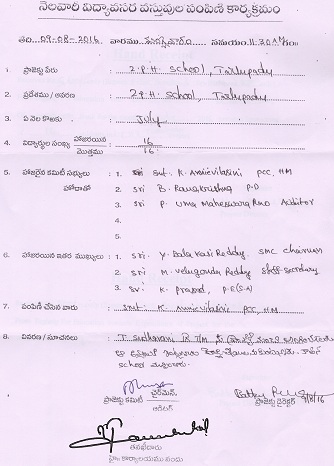 నెలవారి విద్యావసర వస్తువుల పంపిణీ కార్యక్రమం
తేది. 09-08-2016 వారము మంగళవారం సమయం. 11.30AM గం॥
1. ప్రాజెక్టు పేరు : Z.P.H. School, Tarlupadu
2. ప్రదేశము / ఆవరణ : Z.P.H. School, Tarlupadu
3. ఏ నెల కొరకు : July
4. విద్యార్థుల సంఖ్య హాజరయిన / మొత్తము : 16 / 16
5. హాజరైన కమిటీ సభ్యులు : 1. Smt. K. Annie vilasini PCC, HM
హోదాతో 2. Sri B. Ramakrishna P.D
3. Sri P. Uma Maheswara Rao Auditor
4.
5.
6. హాజరయిన ఇతర ముఖ్యులు : 1. Sri. Y. Bala Kasi Reddy. SMC chairman
2. Sri M. Velugonda Reddy Secretary
3. Sri K. Prasad, P.E(S.A)
7. పంపిణీ చేసిన వారు : Smt. K. Annie vilasini PCC, HM
8. వివరణ / సూచనలు : T. Sudharani
School
ప్రాజెక్టు కమిటీ ఛైర్మెన్,
ప్రాజెక్టు డైరెక్టర్ 9/8/16
ఆడిటర్
తనిఖీదారు
హై. కార్యాలయము నందు